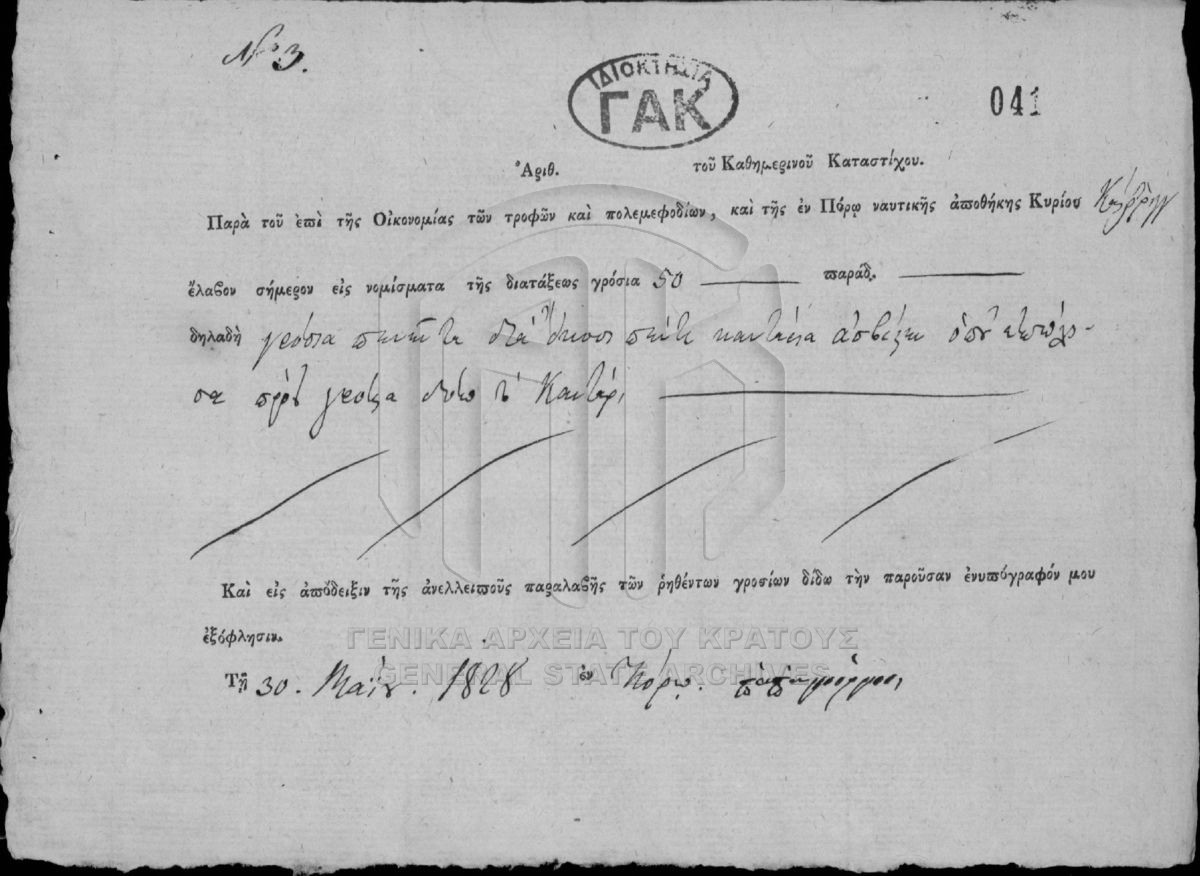 Νο 3.
ΙΔΙΟΚΤΗΣΙΑ
ΓΑΚ
041
Ἀριθ. τοῦ Καθημερινοῦ Καταστίχου.
Παρὰ τοῦ ἐπὶ τῆς Οἰκονομίας τῶν τροφῶν καὶ πολεμεφοδίων, καὶ τῆς ἐν Πόρῳ ναυτικῆς ἀποθήκης Κυρίου
ἔλαβον σήμερον εἰς νομίσματα τῆς διατάξεως γρόσια 50 παράδ.
δηλαδὴ γρόσια πενῆντα διὰ ἤκοσι πέντε καντάρια ἀσβέςη ὁποῦ
πρὸς γρόσια δύο τὸ Καντάρι
Καὶ εἰς ἀπόδειξιν τῆς ἀνελλειποῦς παραλαβῆς τῶν ῥηθέντων γροσίων δίδω τὴν παροῦσαν ἐνυπόγραφόν μου
ἐξόφλησιν.
ΓΕΝΙΚΑ ΑΡΧΕΙΑ ΤΟΥ ΚΡΑΤΟΥΣ
GENERAL STATE ARCHIVES
Τῇ 30. Μαΐου. 1828 ἐν Πόρῳ.